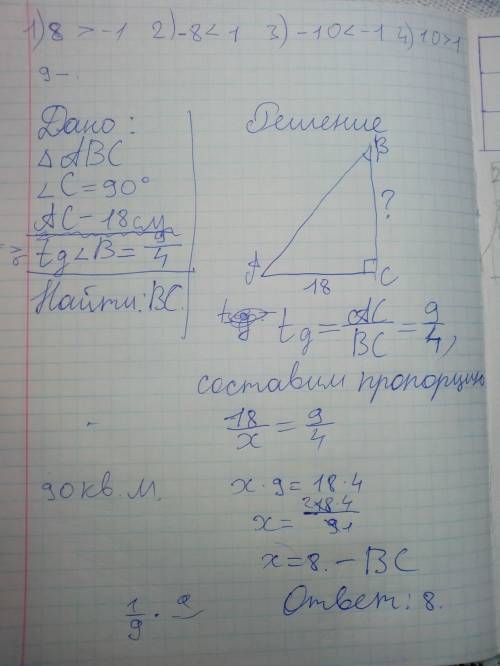 1) 8 > -1 2) -8 < 1 3) -10 < -1 4) 10 > 1
9 -.
Дано:
△ABC
∠C = 90°
AC - 18 см
tg∠B = 9/4
Найти: BC.
Решение
B
?
A
18
C
tg = AC/BC = 9/4,
составим пропорцию
18/x = 9/4
90 кв. м.
x · 9 = 18 · 4
x = 18·4/9
x = 8. - BC
Ответ: 8.
1/9 ·